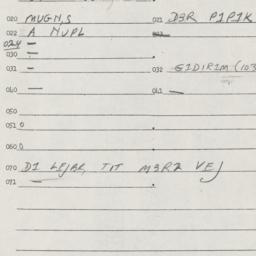 020 MUGN,S 021 D3R P1P1K
022 A NUPL 023
024 —
030 —
031 — 032 GIDIRIM (103
040 — 041 —
050
051 0
060 0
070 D1 LEJAR, TIT M3RZ VEJ
071 —